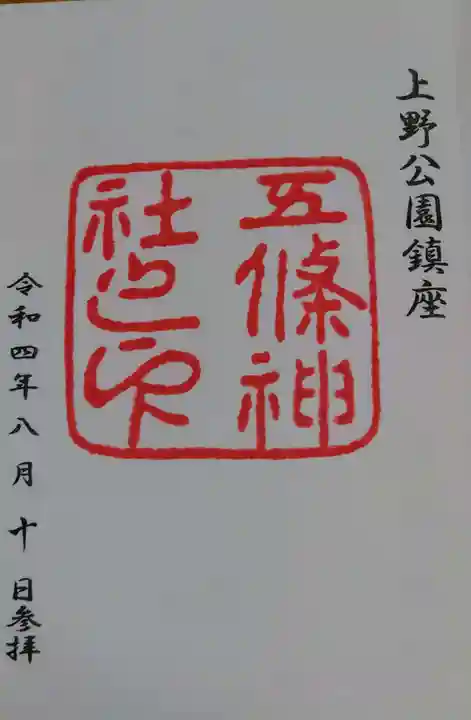 上野公園鎮座
五條神
社之印
令和四年八月十日参拝